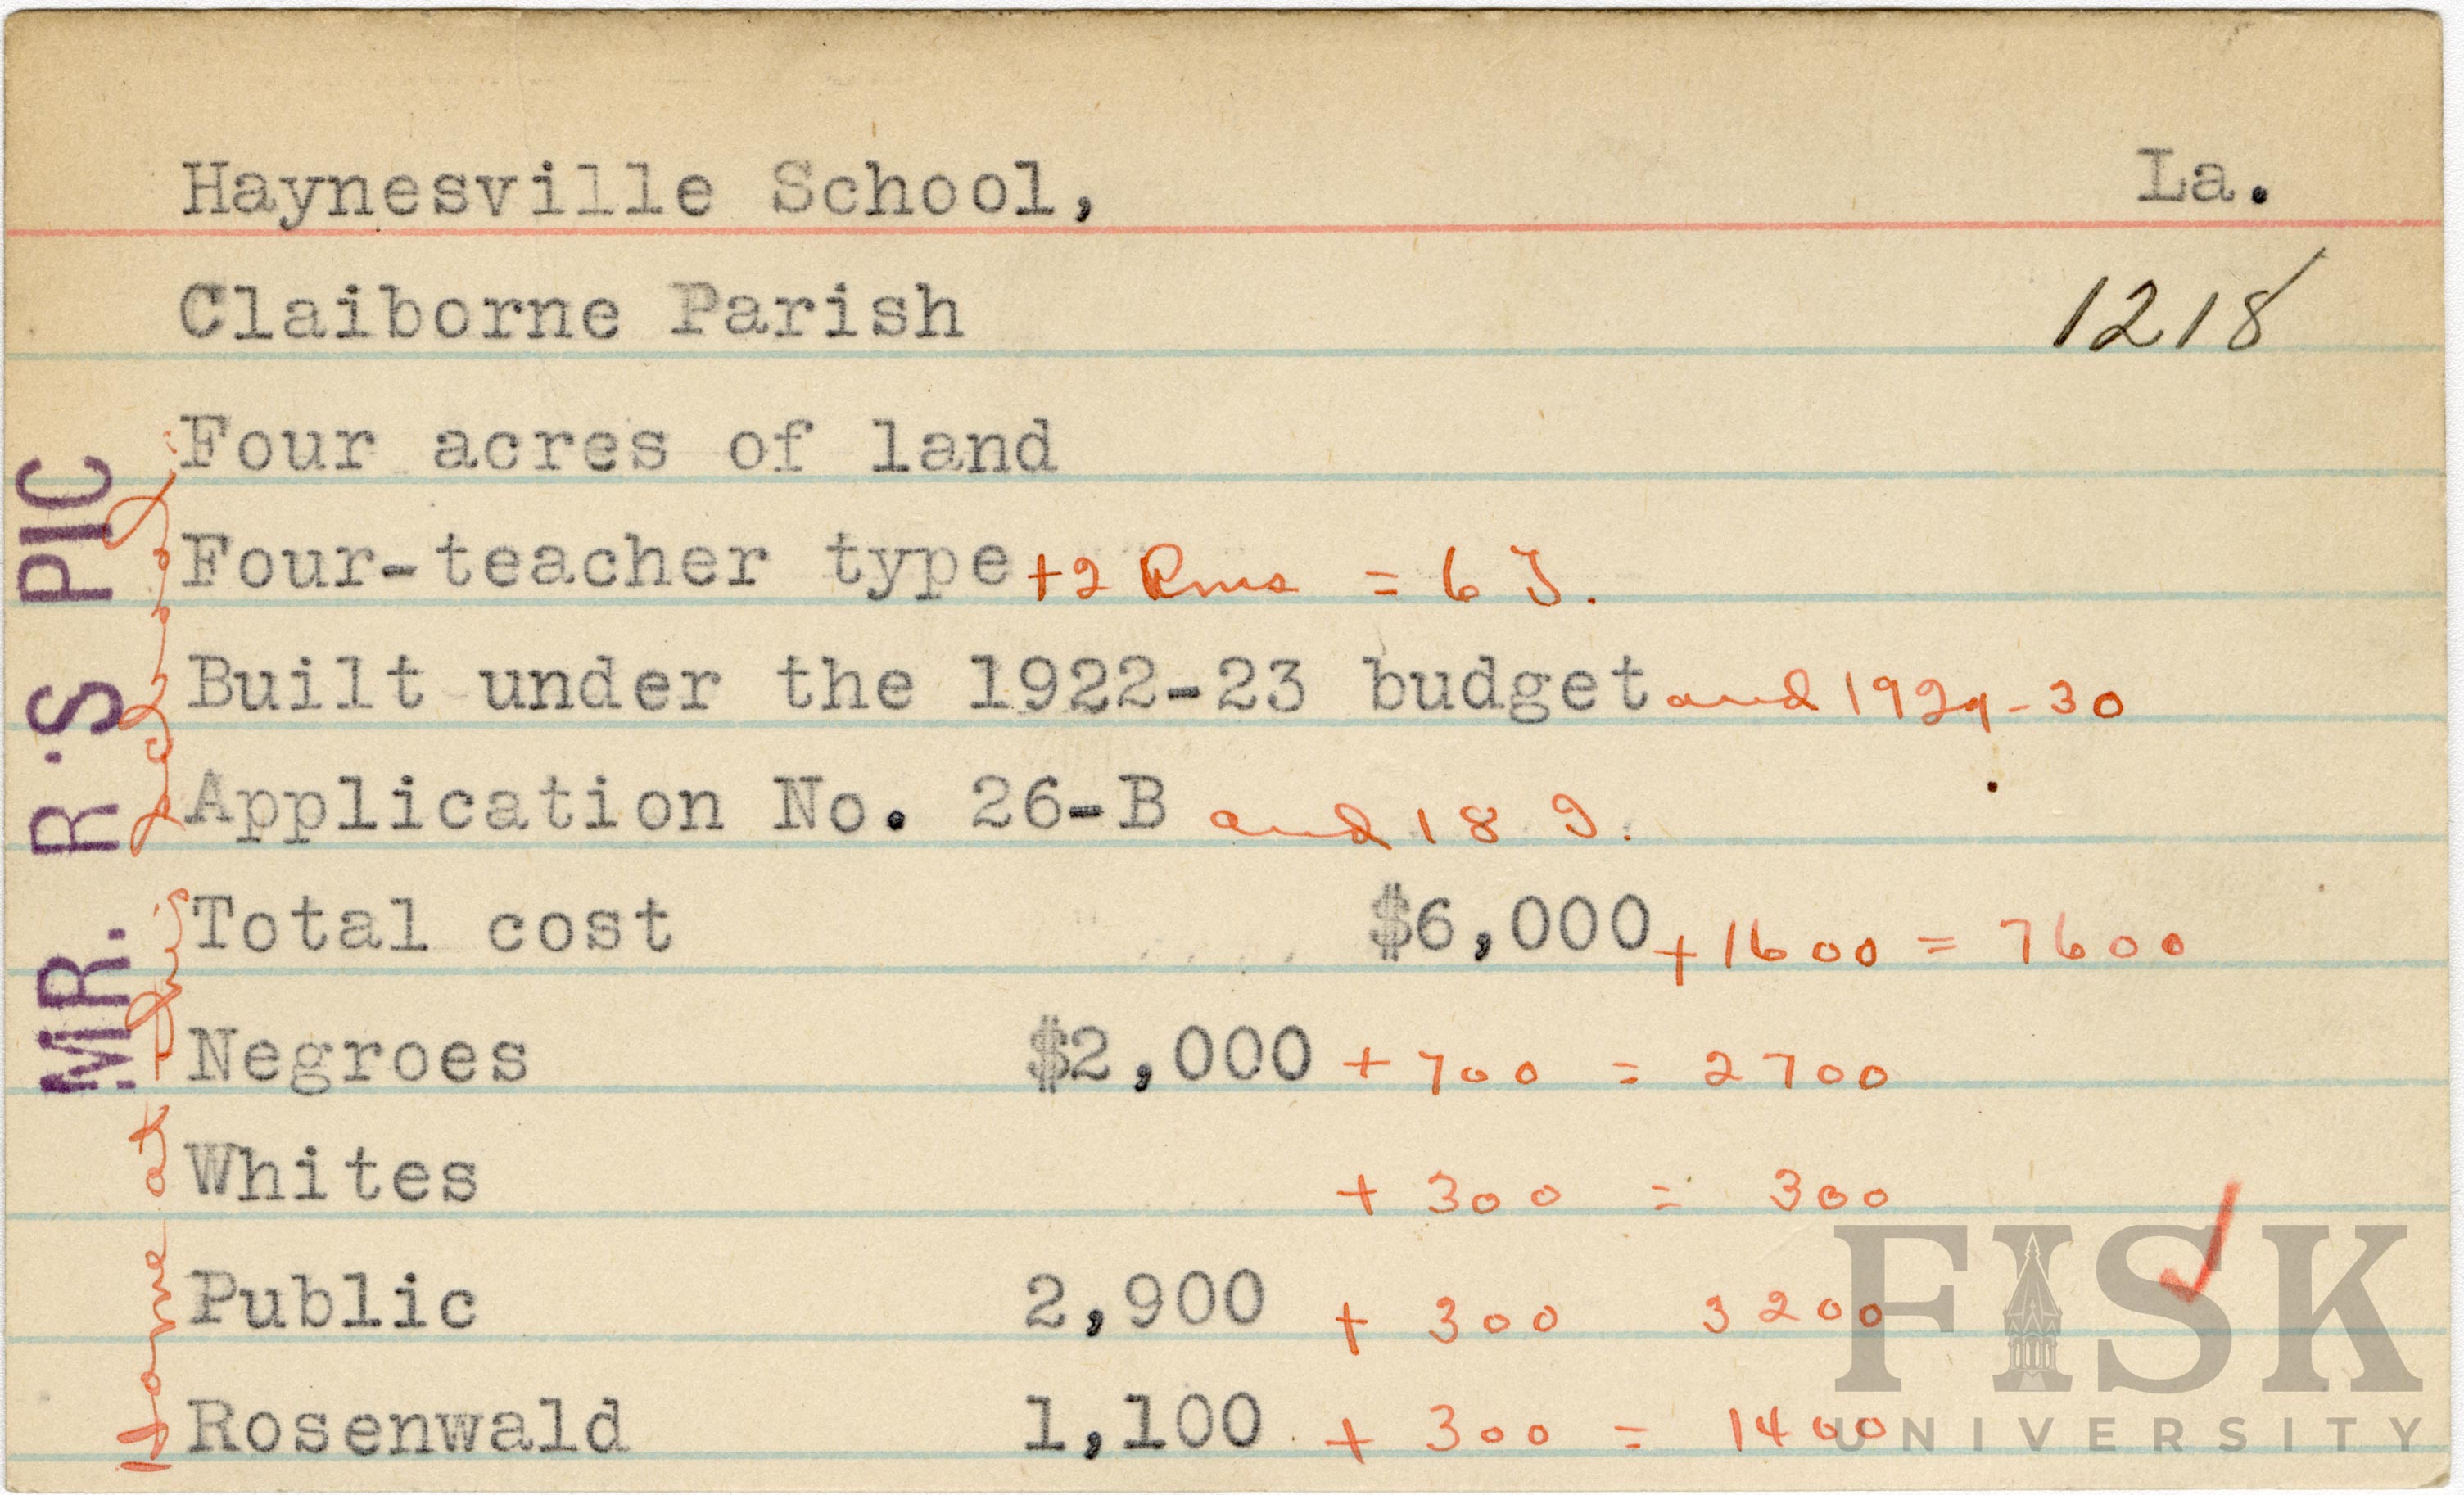 Haynesville School, La.
Claiborne Parish 1218
Four acres of land
Four-teacher type +2 Rms = 6 T.
Built under the 1922-23 budget and 1929-30
Application No. 26-B and 18 I.
Total cost $6,000 + 1600 = 7600
Negroes $2,000 + 700 = 2700
Whites + 300 = 300
Public 2,900 + 300 3200
Rosenwald 1,100 + 300 = 1400
MR. R·S PIC
Home at this
FISK
UNIVERSITY